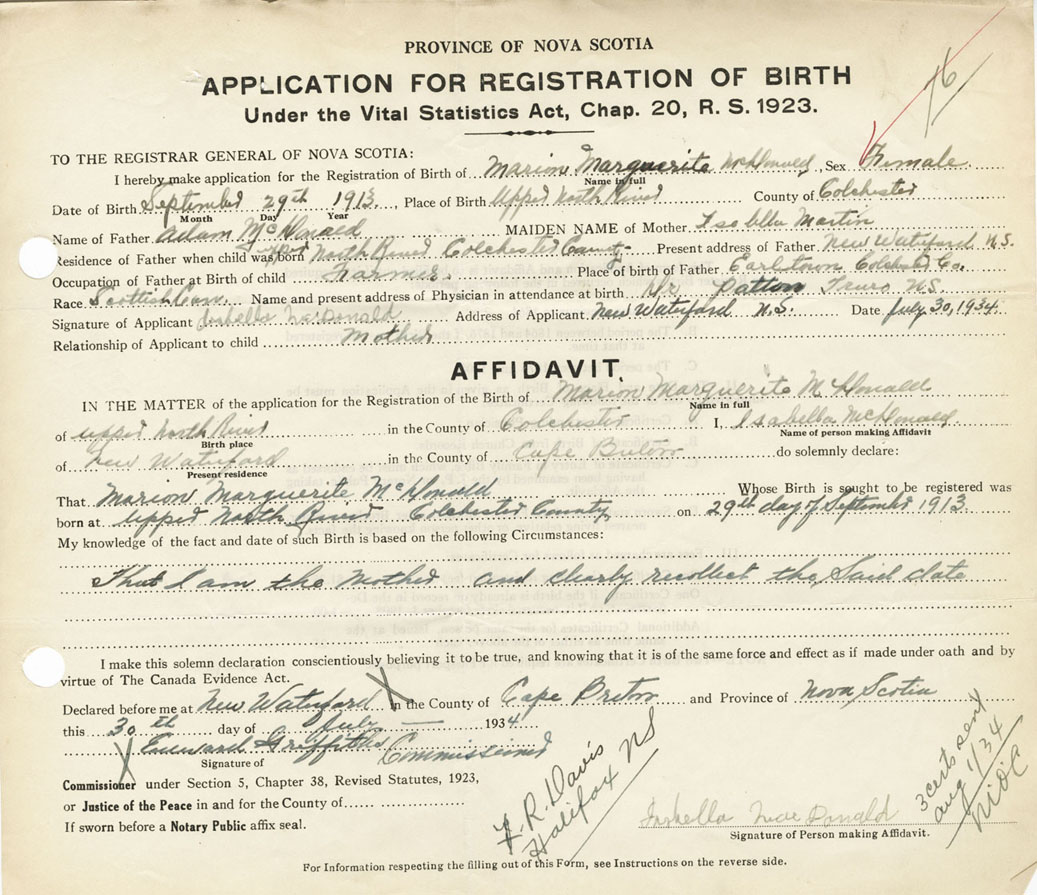 76
PROVINCE OF NOVA SCOTIA
APPLICATION FOR REGISTRATION OF BIRTH
Under the Vital Statistics Act, Chap. 20, R. S. 1923.
TO THE REGISTRAR GENERAL OF NOVA SCOTIA:
I hereby make application for the Registration of Birth of Marion Marguerite McDonald, Sex Female
Name in full
Date of Birth September 29th 1913, Place of Birth Upper North River County of Colchester
Month Day Year
Name of Father Adam McDonald MAIDEN NAME of Mother Isabella Martin
Residence of Father when child was born Upper North River Colchester County Present address of Father New Waterford N.S.
Occupation of Father at Birth of child Farmer. Place of birth of Father Earltown Colchester Co.
Race Scottish Name and present address of Physician in attendance at birth Dr Patton Truro N.S.
Signature of Applicant Isabella McDonald Address of Applicant New Waterford N.S. Date July 30, 1934.
Relationship of Applicant to child Mother
AFFIDAVIT.
IN THE MATTER of the application for the Registration of the Birth of Marion Marguerite McDonald
Name in full
of Upper North River in the County of Colchester I, Isabella McDonald
Birth place Name of person making Affidavit
of New Waterford in the County of Cape Breton do solemnly declare:
Present residence
That Marion Marguerite McDonald Whose Birth is sought to be registered was
born at Upper North River Colchester County on 29th day of September 1913.
My knowledge of the fact and date of such Birth is based on the following Circumstances:
That I am the Mother and clearly recollect the said date
I make this solemn declaration conscientiously believing it to be true, and knowing that it is of the same force and effect as if made under oath and by
virtue of The Canada Evidence Act.
Declared before me at New Waterford in the County of Cape Breton and Province of Nova Scotia
this 30th day of July 1934.
X Griffiths Commissioner
Signature of
Commissioner under Section 5, Chapter 38, Revised Statutes, 1923,
or Justice of the Peace in and for the County of
If sworn before a Notary Public affix seal.
F. R. Davis
Halifax NS
Isabella MacDonald
Signature of Person making Affidavit.
3 certs sent
Aug 1/34
For Information respecting the filling out of this Form, see Instructions on the reverse side.